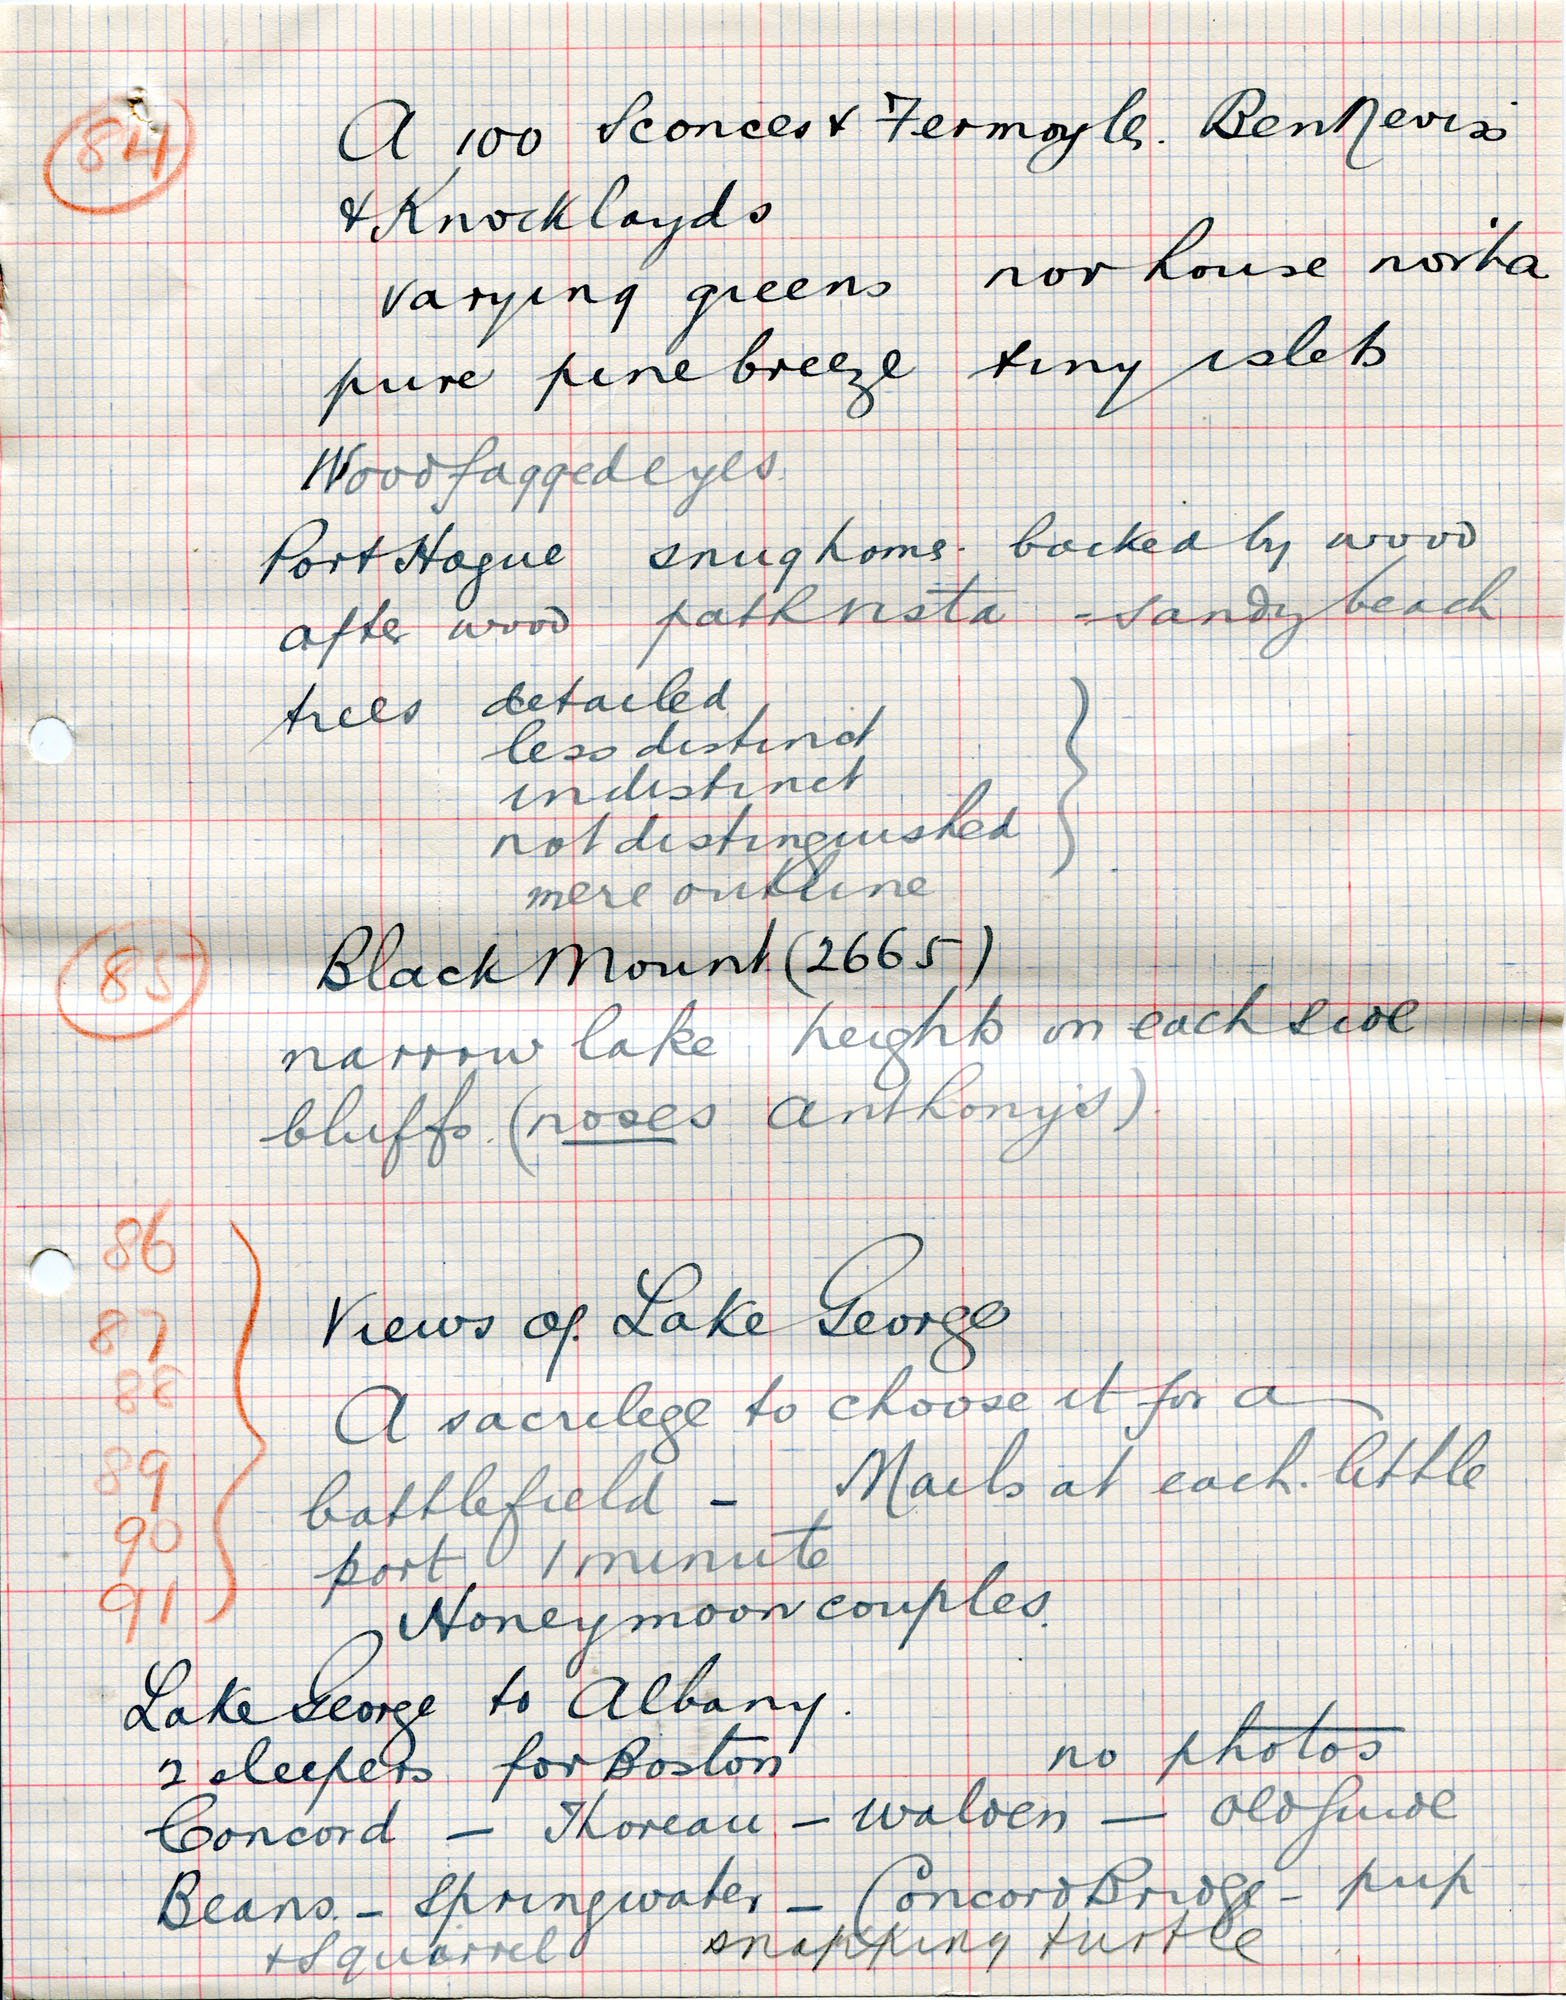 84 A 100 Sconces & Fermoyle. Ben Nevis
& Knocklayds
varying greens nor house nor ha
pure pine breeze tiny islets
Wood fagged eyes.
Port Hague snug home. backed by wood
after wood path vista - sandy beach
trees detailed
less distinct
indistinct
not distinguished
mere outline
85 Black Mount (2665)
narrow lake heights on each side
bluffs. (noses Anthony's).
86
87 Views of Lake George
88 A sacrilege to choose it for a
89 battlefield - Mails at each little
90 port 1 minute
91 Honeymoon couples.
Lake George to Albany.
2 sleepers for Boston no photos
Concord - Thoreau - Walden - old guide
Beans. - Springwater - Concord Bridge - pup
+ squirrel snapping turtle